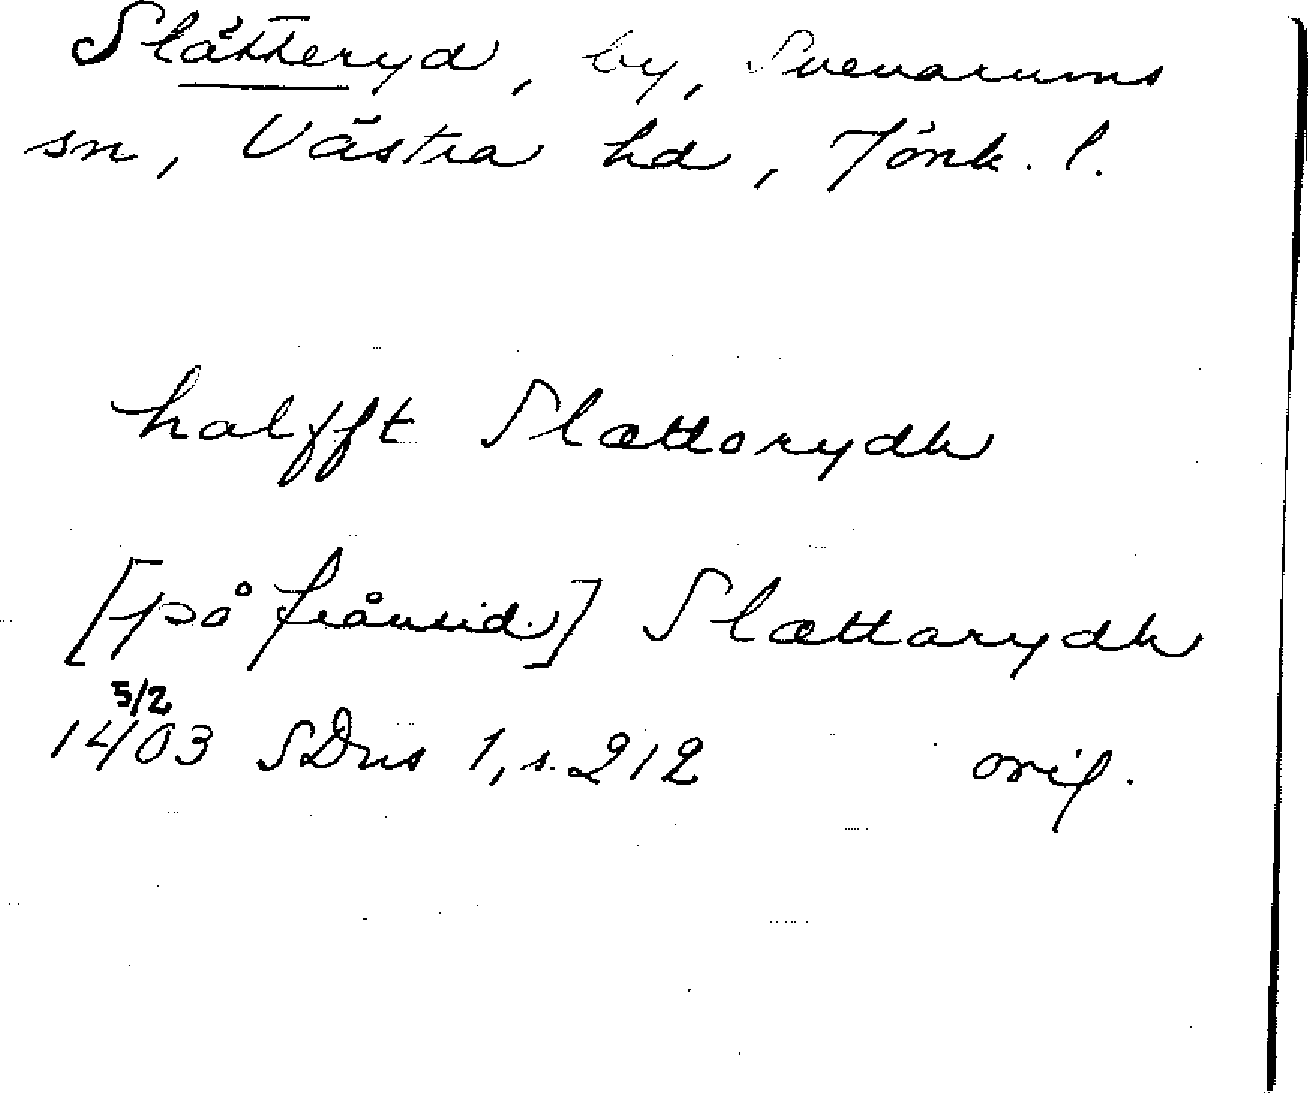 Slätteryd, by, Svenarums
sn, Västra hd, Jönk. l.
halfft Slættorydh
[på frånsid.] Slættarydh
5/2
1403 SDns 1, s. 212 orig.